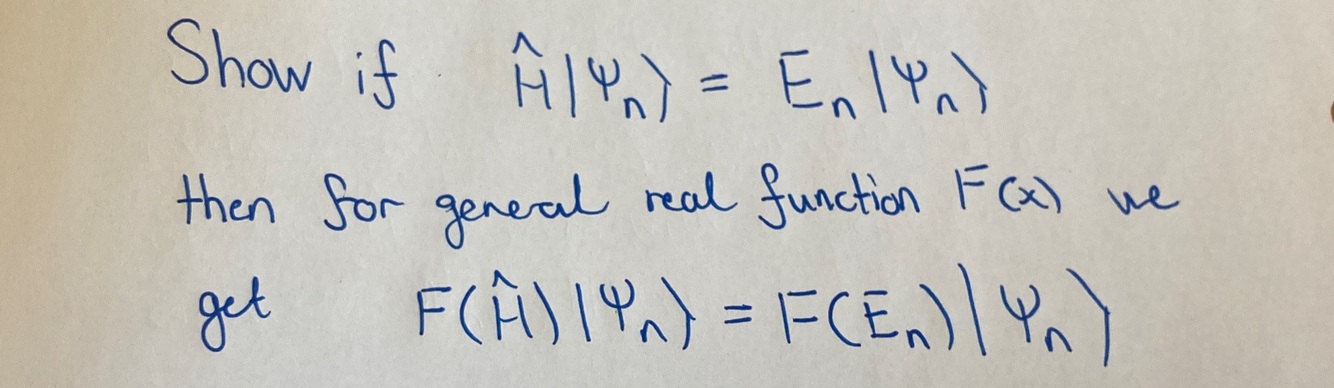 Show if Ĥ|Ψₙ⟩ = Eₙ|Ψₙ⟩
then for general real function F(x) we
get F(Ĥ)|Ψₙ⟩ = F(Eₙ)|Ψₙ⟩